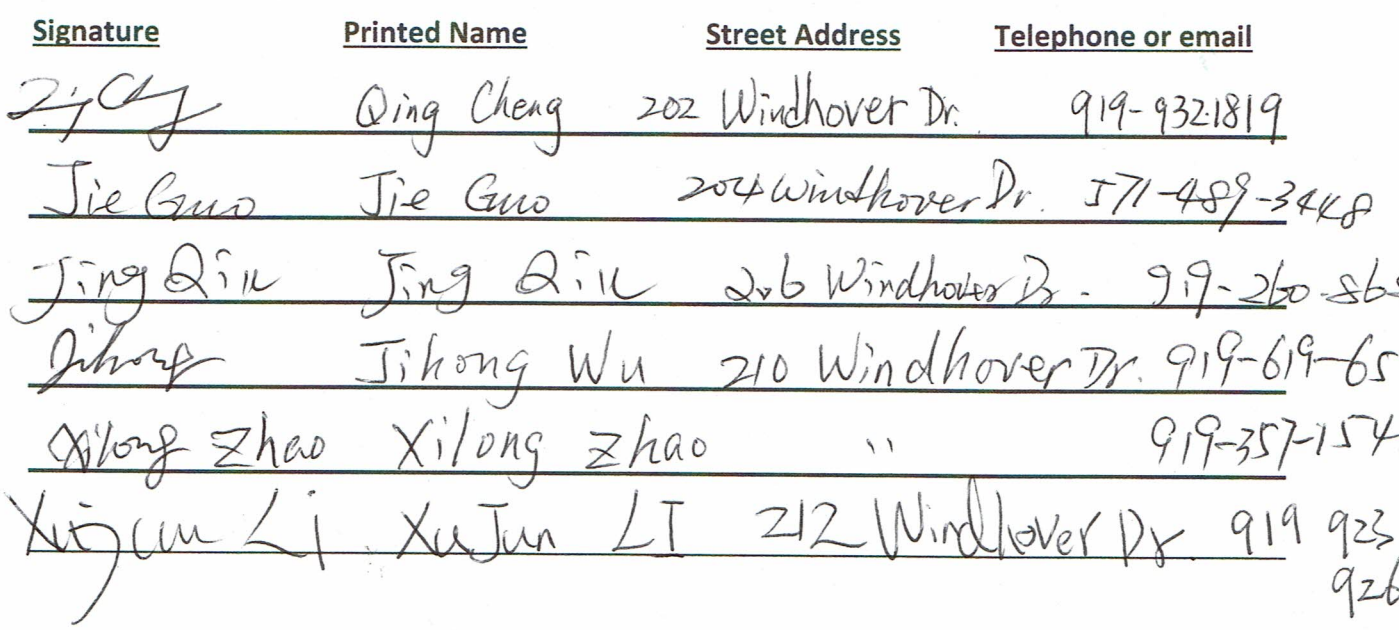 Signature Printed Name Street Address Telephone or email
Qing Cheng 202 Windhover Dr. 919-932-1819
Jie Guo Jie Guo 204 Windhover Dr. 571-489-3448
Jing Qiu Jing Qiu 206 Windhover Dr. 919-260-86
Jihong Jihong Wu 210 Windhover Dr. 919-619-65
Xilong Zhao Xilong Zhao " 919-357-154
Xujun Li XuJun LI 212 Windhover Dr. 919 923
926